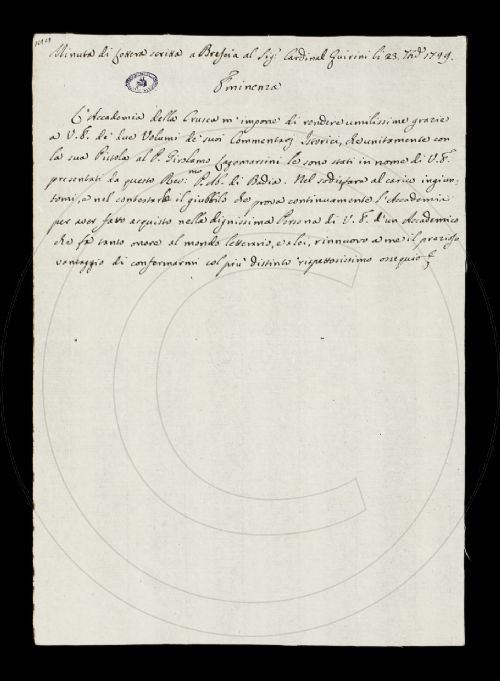 Minuta di Lettera scritta a Brescia al Sig.r Cardinal Quirini li 23. 1749.
Eminenza
L'Accademia della Crusca m'impone di rendere umilissime grazie
a V. E. di due Volumi de' suoi Commentarj Istorici, che unitamente con
la sua Pistola al P. Girolamo Lagomarsini le sono stati in nome di V. E.
presentati da questo Rev.mo P. Ab. di Badia. Nel sodisfare al carico ingiun-
tomi, e nel contestarle il giubbilo che prova continuamente l'Accademia
per aver fatto acquisto nella dignissima Persona di V. E. d'un Accademico
che fa tanto onore al mondo letterario, e a lei, rinnuovo a me il prezioso
vantaggio di confermarmi col più distinto rispettosissimo ossequio